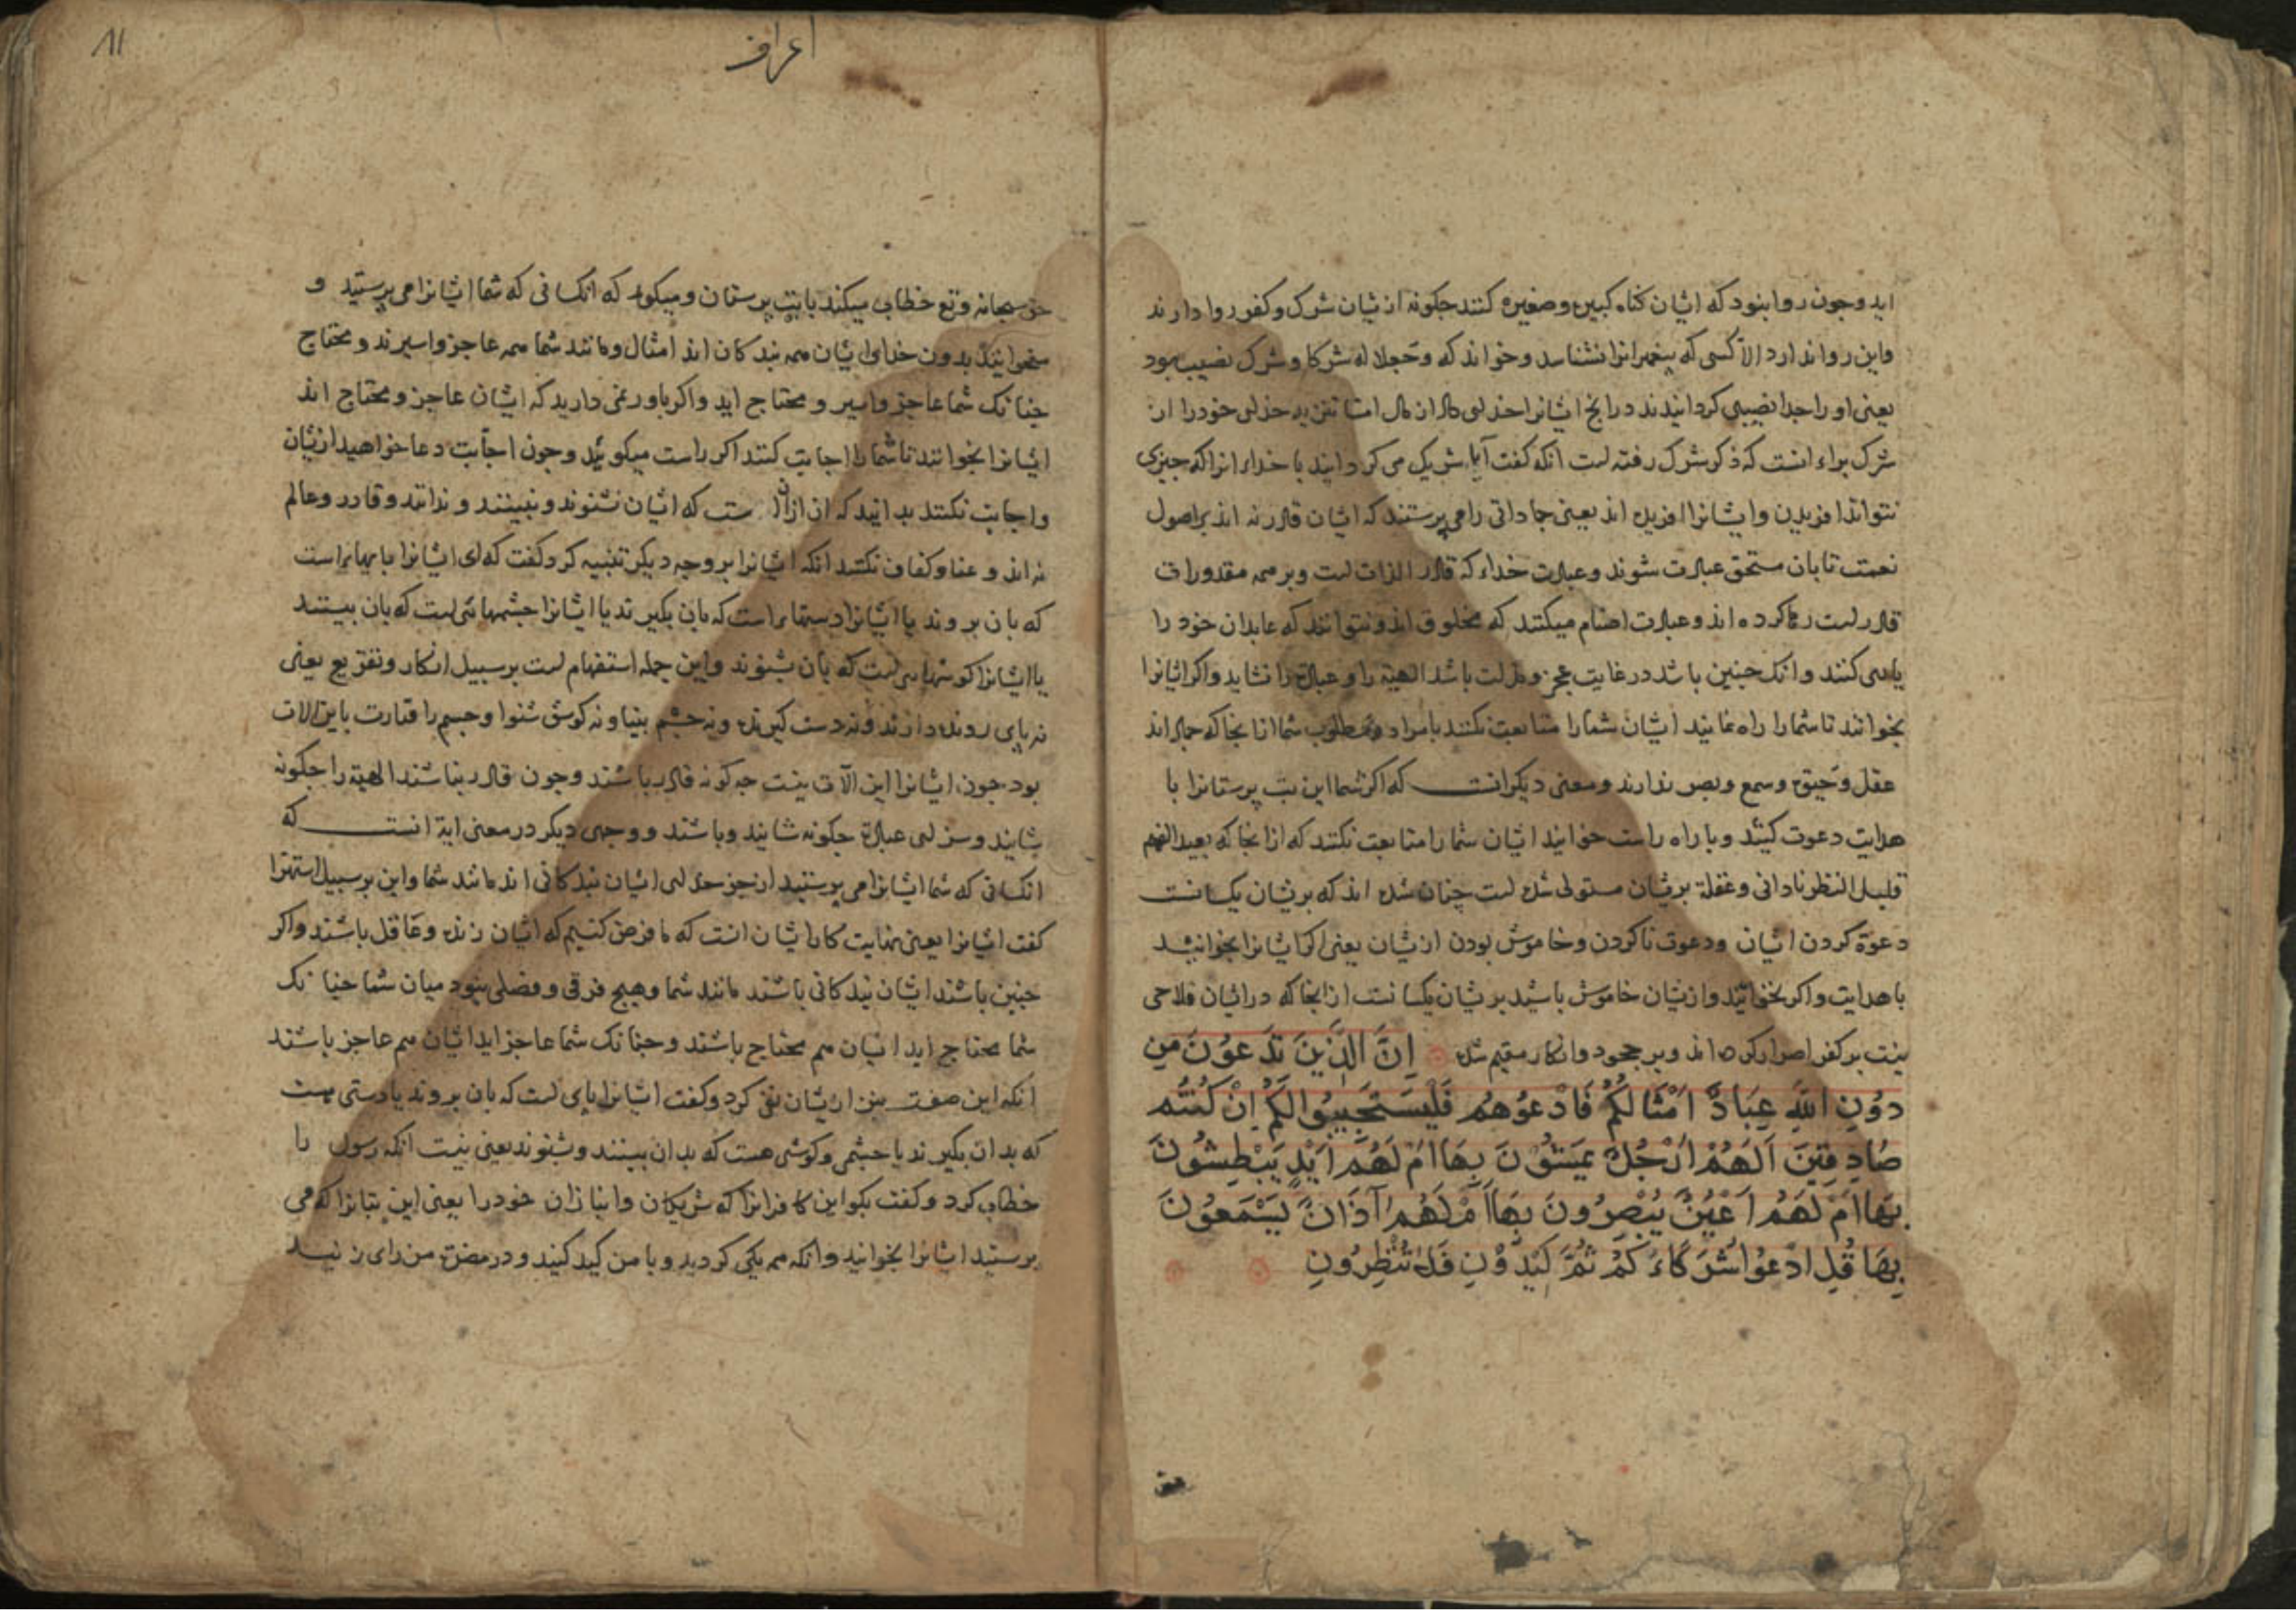 اید وجون روا بنود که ایشان کناه کبیره وصغیره کنند جکونه ازیشان شرک وکفر روا دارند
واین روا ندارد الا کسی که پیغمبرانرا نشناسد وخواند که وجعلا له شرکا وشرک نصیب بود
یعنی اورا جدا نصیبی کردانیدند
شرک براء انست که ذکر شرک رفته است انکه کفت آیا شریک می کردانید با خداء انرا که جیزی
نتواند افریدن وایشانرا افریده اند یعنی جماداتی را می پرستند که ایشان قادر نه اند بر اصول
نعمت تا بان مستحق عبادت شوند وعبادت خداء که قادر الذات است وبر همه مقدورات
قادر است رها کرده اند وعبادت اصنام میکنند که مخلوق اند ونتوانند که عابدان خود را
یاری کنند وانک جنین باشد در غایت عجز ومذلت باشد الهیة را وعبادة را نشاید واکر ایشانرا
بخوانند تا شما را راه نمایند ایشان شما را متابعت نکنند بامراد ومطلوب شما ازانجا که جماد اند
عقل وحیوة وسمع وبصر ندارند ومعنی دیکر انست که اکر شما این بت پرستانرا با
هدایت دعوت کنید وبا راه راست خوانید ایشان شما را متابعت نکنند که ازانجا که بعید الفهم
قلیل النظر نادانی وغفلة بریشان مستولی شده است چنان شده اند که بریشان یکسانست
دعوة کردن ایشان ودعوت ناکردن وخاموش بودن ازیشان یعنی اکر ایشانرا بخوانید
با هدایت واکر نخوانید وازیشان خاموش باشید بریشان یکسانست ازانجا که در ایشان فلاحی
نیست بر کفر اصرار کرده اند وبر جحود وانکار مقیم شده اِنَّ الَّذِینَ تَدْعُوْنَ مِن
دُوْنِ اللّهِ عِبَادٌ اَمْثَالُکُمْ فَادْعُوْهُم فَلْیَسْتَجِیبُوا لَکُمْ اِنْ کُنْتُم
صَادِقِینَ اَلَهُمْ اَرْجُلٌ یَمْشُوْنَ بِهَا اَمْ لَهُمْ اَیْدٍ یَبْطِشُوْنَ
بِهَا اَمْ لَهُمْ اَعْیُنٌ یُبْصِرُونَ بِهَا اَمْ لَهُمْ آذَانٌ یَسْمَعُوْنَ
بِهَا قُلِ ادْعُوا شُرَکَاءَکُمْ ثُمَّ کِیْدُوْنِ فَلَا تُنْظِرُونِ
حق
11
اعراف
حق سبحانه وتع خطاب میکند با بت پرستان ومیکود که انکسانی که شما ایشانرا می پرستید و
میخوانید بدون خدای ایشان همه بندکان اند امثال ومانند شما همه عاجز واسیرند ومحتاج
جنانک شما عاجز واسیر ومحتاج اید واکر باور نمی دارید که ایشان عاجز ومحتاج اند
ایشانرا بخوانید تا شما را اجابت کنند اکر راست میکوئید وجون اجابت دعا خواهید ازیشان
واجابت نکنند بدانید که ان ازان ست که ایشان نشنوند ونبینند وندانند وقادر وعالم
نه اند وغنا وکفاف نکنند انکه ایشانرا بر وجه دیکر تنبیه کرد کفت که ای ایشانرا پایهائی است
که بان بروند یا ایشانرا دستهائی است که بان بکیرند یا ایشانرا جشمهائی است که بان بینند
یا ایشانرا کوشهائی است که بان شنوند واین جمله استفهام است بر سبیل انکار وتقریع یعنی
نه پای رونده دارند ونه دست کیرنده ونه جشم بینا ونه کوش شنوا وجسم را قدرت باین الات
بود جون ایشانرا این الآت نیست جه کونه قادر باشند وجون قادر نباشند الهیة را جکونه
شایند وسزای عبادة جکونه شایند وباشند ووجهی دیکر در معنی ایة انست که
انکسانی که شما ایشانرا می پرستید از جز خدای ایشان بندکانی اند مانند شما واین بر سبیل استهزا
کفت ایشانرا یعنی نهایت کار ایشان انت که ما فرض کنیم که ایشان زنده وعاقل باشند واکر
جنین باشند ایشان بندکانی باشند مانند شما وهیج فرقی وفضلی نبود میان شما جنانک
شما محتاج اید ایشان هم محتاج باشند وجنانک شما عاجز اید ایشان هم عاجز باشند
انکه این صفت نیز ازیشان نفی کرد وکفت ایشانرا پای است که بان بروند یا دستی هست
که بدان بکیرند یا جشمی وکوشی هست که بدان بینند وشنوند یعنی نیست انکه رسول را
خطاب کرد وکفت بکو این کافرانرا که شریکان وانبازان خود را یعنی این بتانرا که می
پرستید ایشانرا بخوانید وانکه همه یکی کردید وبا من کید کنید ودر مضرت من رای زنید